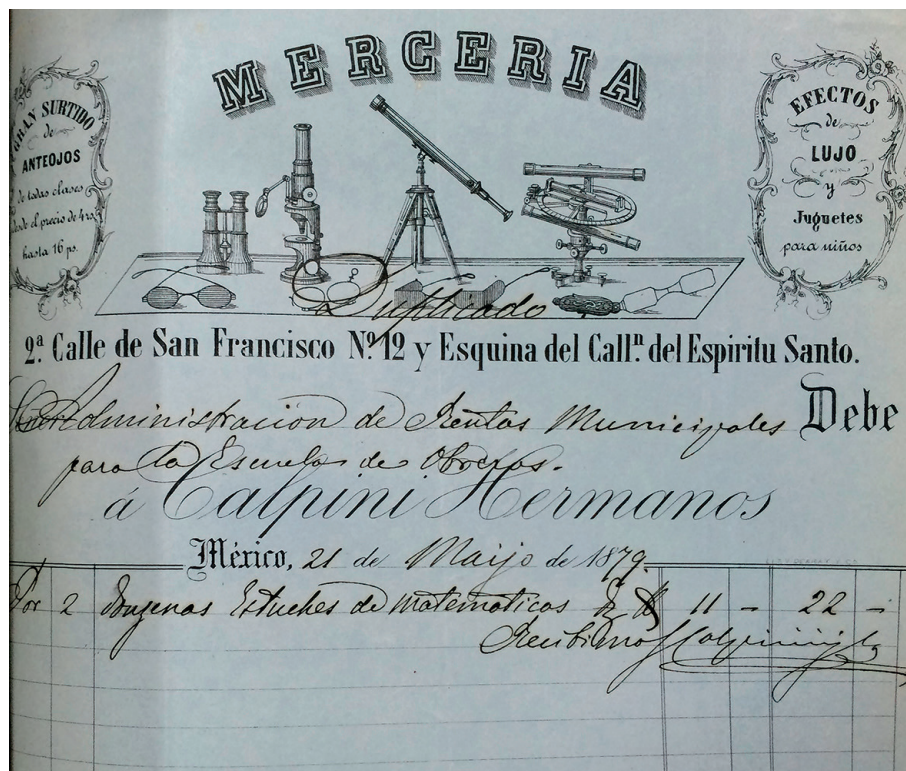 MERCERIA
GRAN SURTIDO
de
ANTEOJOS
de todas clases
desde el precio de 4 rs.
hasta 16 ps.
EFECTOS
de
LUJO
y
Juguetes
para niños
Duplicado
2ª. Calle de San Francisco Nº. 12 y Esquina del Callⁿ. del Espiritu Santo.
Administracion de Rentas Municipales Debe
para la Escuela de Obreros.
á Calpini Hermanos
México, 21 de Mayo de 1879.
Por 2 Dozenas Estuches de Matematicas $ 11 - 22 -
Recibimos Calpini